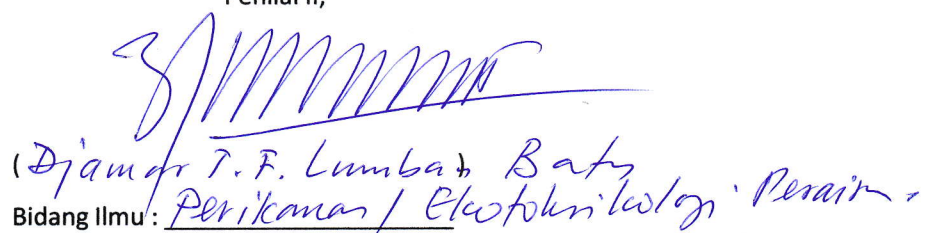 Penilai II,
(Djamar T.F. Lumban Batu
Bidang Ilmu : Perikanan / Ekotoksikologi Perairan